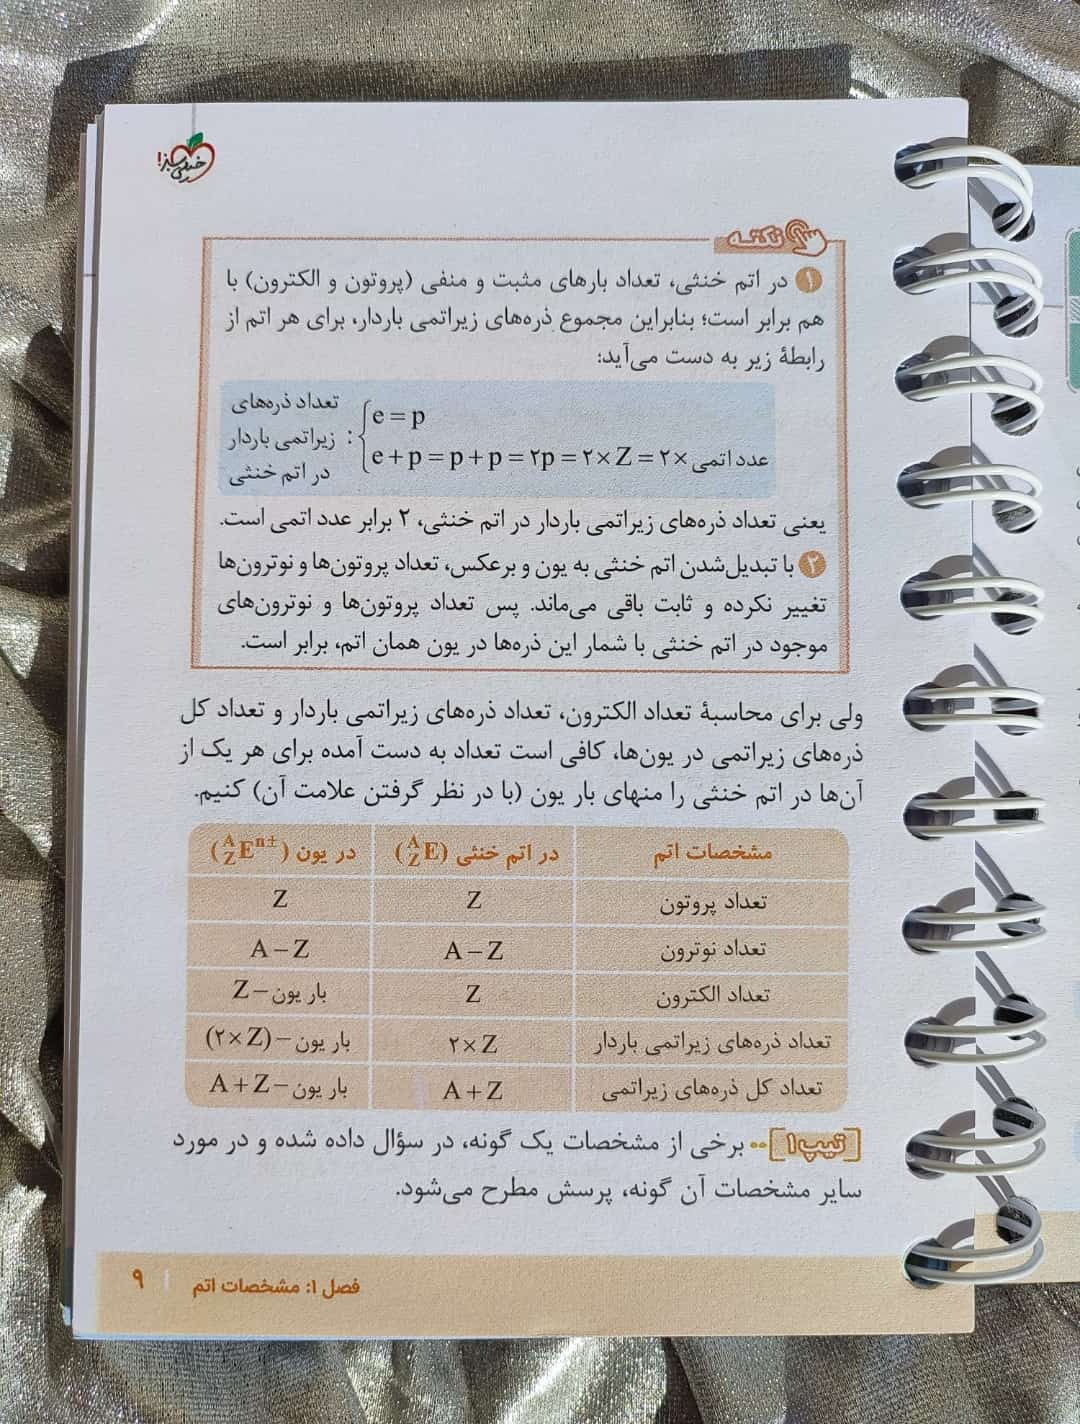 خیلی سبز!
نکته
۱ در اتم خنثی، تعداد بارهای مثبت و منفی (پروتون و الکترون) با
هم برابر است؛ بنابراین مجموع ذره‌های زیراتمی باردار، برای هر اتم از
رابطهٔ زیر به دست می‌آید:
تعداد ذره‌های
زیراتمی باردار :
در اتم خنثی
e = p
e + p = p + p = ۲p = ۲ × Z = ۲ × عدد اتمی
یعنی تعداد ذره‌های زیراتمی باردار در اتم خنثی، ۲ برابر عدد اتمی است.
۲ با تبدیل‌شدن اتم خنثی به یون و برعکس، تعداد پروتون‌ها و نوترون‌ها
تغییر نکرده و ثابت باقی می‌ماند. پس تعداد پروتون‌ها و نوترون‌های
موجود در اتم خنثی با شمار این ذره‌ها در یون همان اتم، برابر است.
ولی برای محاسبهٔ تعداد الکترون، تعداد ذره‌های زیراتمی باردار و تعداد کل
ذره‌های زیراتمی در یون‌ها، کافی است تعداد به دست آمده برای هر یک از
آن‌ها در اتم خنثی را منهای بار یون (با در نظر گرفتن علامت آن) کنیم.
مشخصات اتم در اتم خنثی (ᴬ_Z E) در یون (ᴬ_Z Eⁿ±)
تعداد پروتون Z Z
تعداد نوترون A – Z A – Z
تعداد الکترون Z Z – بار یون
تعداد ذره‌های زیراتمی باردار ۲ × Z (۲ × Z) – بار یون
تعداد کل ذره‌های زیراتمی A + Z A + Z – بار یون
[تیپ ۱] •• برخی از مشخصات یک گونه، در سؤال داده شده و در مورد
سایر مشخصات آن گونه، پرسش مطرح می‌شود.
فصل ۱: مشخصات اتم | ۹